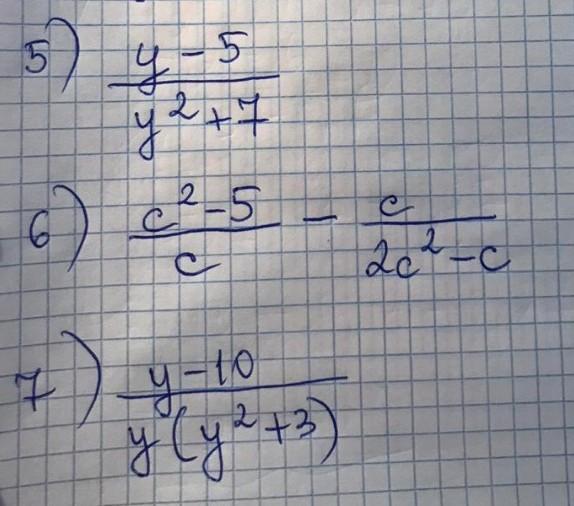 5) (y - 5) / (y² + 7)
6) (c² - 5) / c - c / (2c² - c)
7) (y - 10) / (y(y² + 3))